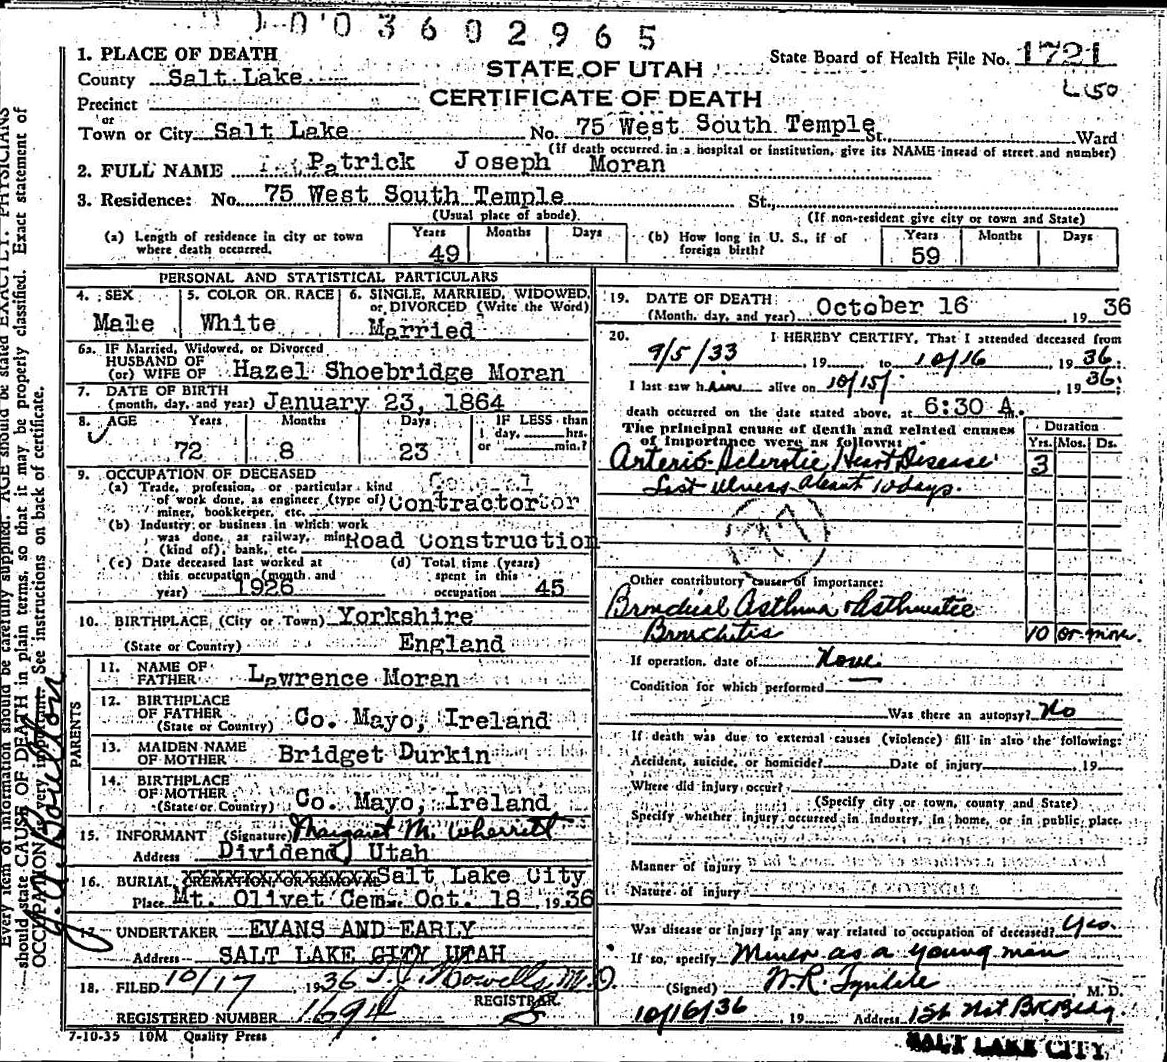 003602965
1. PLACE OF DEATH
County Salt Lake
Precinct
or
Town or City Salt Lake No. 75 West South Temple St. Ward
STATE OF UTAH
CERTIFICATE OF DEATH
State Board of Health File No. 1721
L150
(If death occurred in a hospital or institution, give its NAME insead of street and number)
2. FULL NAME Patrick Joseph Moran
3. Residence: No. 75 West South Temple St.,
(Usual place of abode) (If non-resident give city or town and State)
(a) Length of residence in city or town where death occurred. Years 49 Months Days
(b) How long in U. S., if of foreign birth? Years 59 Months Days
PERSONAL AND STATISTICAL PARTICULARS
4. SEX Male
5. COLOR OR RACE White
6. SINGLE, MARRIED, WIDOWED, or DIVORCED (Write the Word) Married
6a. IF Married, Widowed, or Divorced
HUSBAND OF
(or) WIFE OF Hazel Shoebridge Moran
7. DATE OF BIRTH
(month, day, and year) January 23, 1864
8. AGE Years 72 Months 8 Days 23 IF LESS than 1 day, hrs. or min.?
9. OCCUPATION OF DECEASED
(a) Trade, profession, or particular kind
of work done, as engineer, (type of)
miner, bookkeeper, etc. Contractor
(b) Industry or business in which work
was done, as railway, min
(kind of), bank, etc. Road Construction
(c) Date deceased last worked at
this occupation (month and
year) 1926
(d) Total time (years)
spent in this
occupation 45
10. BIRTHPLACE, (City or Town) Yorkshire
(State or Country) England
PARENTS
11. NAME OF
FATHER Lawrence Moran
12. BIRTHPLACE
OF FATHER
(State or Country) Co. Mayo, Ireland
13. MAIDEN NAME
OF MOTHER Bridget Durkin
14. BIRTHPLACE
OF MOTHER
(State or Country) Co. Mayo, Ireland
15. INFORMANT (Signature) Margaret M. Wherritt
Address Dividend, Utah
16. BURIAL, CREMATION, OR REMOVAL Salt Lake City
Place Mt. Olivet Cem. Oct. 18, 1936
17. UNDERTAKER EVANS AND EARLY
Address SALT LAKE CITY UTAH
18. FILED 10/17, 1936 T. J. Howells M.D.
REGISTRAR
REGISTERED NUMBER 1694
7-10-35 10M Quality Press
19. DATE OF DEATH:
(Month, day, and year) October 16, 1936
20. I HEREBY CERTIFY, That I attended deceased from
9/5/33, 19 to 10/16 1936.
I last saw him alive on 10/15/, 1936.
death occurred on the date stated above, at 6:30 A.m.
The principal cause of death and related causes
of importance were as follows:
Duration
Yrs. Mos. Ds.
Arterio-Sclerotic Heart Disease 3
Last illness about 10 days.
Other contributory causes of importance:
Bronchial Asthma & Asthmatic
Bronchitis 10 or more.
If operation, date of None
Condition for which performed
Was there an autopsy? No
If death was due to external causes (violence) fill in also the following:
Accident, suicide, or homicide? Date of injury, 19
Where did injury occur?
(Specify city or town, county and State)
Specify whether injury occurred in industry, in home, or in public place.
Manner of injury
Nature of injury
Was disease or injury in any way related to occupation of deceased? Yes.
If so, specify Miner as a young man
(Signed) W. R. M. D.
10/16/36 19 Address 1st Nat Bk Bldg.
SALT LAKE CITY
Every item of information should be carefully supplied. AGE should be stated EXACTLY. PHYSICIANS
should state CAUSE OF DEATH in plain terms, so that it may be properly classified. Exact statement of
OCCUPATION is very important. See instructions on back of certificate.